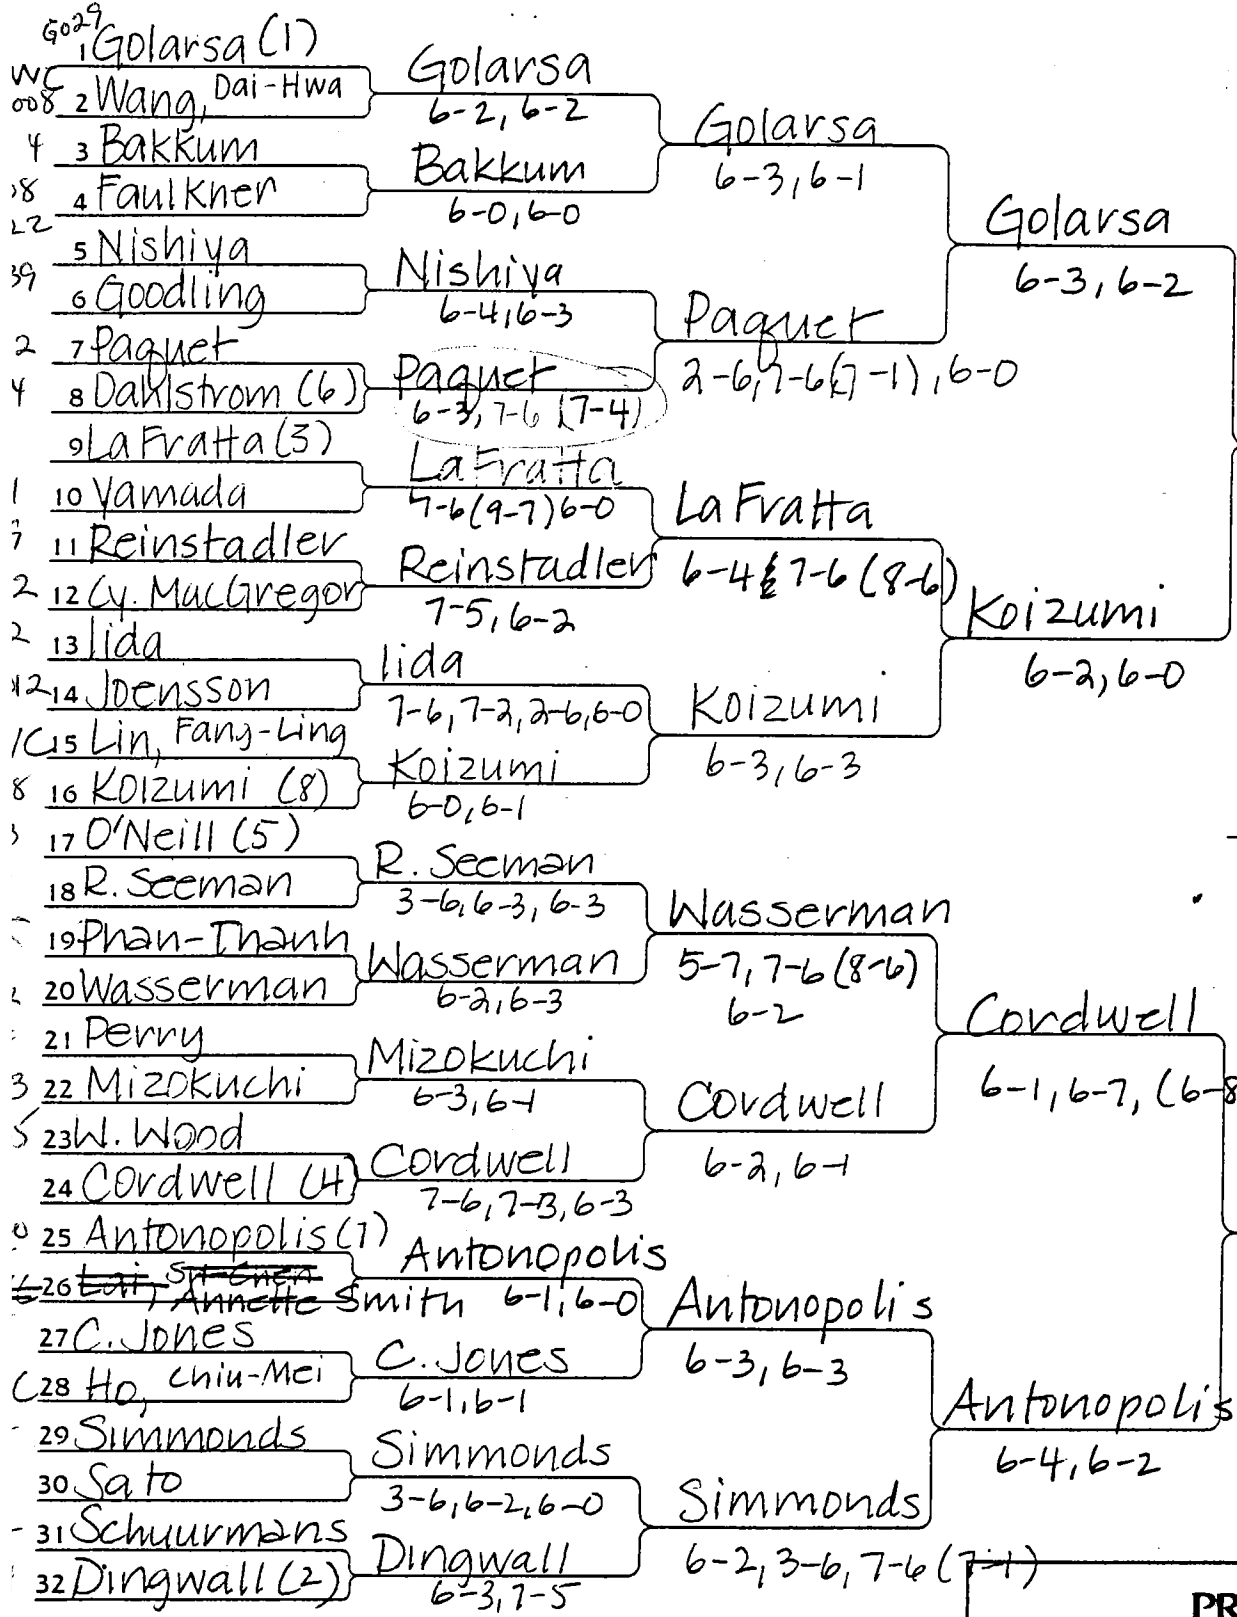 G029
1 Golarsa (1)
WC
008 2 Wang, Dai-Hwa
4 3 Bakkum
4 Faulkner
22
5 Nishiya
39
6 Goodling
2 7 Paquet
4 8 Dahlstrom (6)
9 La Fratta (3)
1 10 Yamada
11 Reinstadler
2 12 Cy. MacGregor
2 13 Iida
12 14 Joensson
15 Lin, Fang-Ling
8 16 Koizumi (8)
17 O'Neill (5)
18 R. Seeman
19 Phan-Thanh
20 Wasserman
21 Perry
3 22 Mizokuchi
5 23 W. Wood
24 Cordwell (4)
25 Antonopolis (7)
26 Annette Smith
27 C. Jones
C 28 Ho, Chiu-Mei
29 Simmonds
30 Sato
31 Schuurmans
32 Dingwall (2)
Golarsa
6-2, 6-2
Bakkum
6-0, 6-0
Nishiya
6-4, 6-3
Paquet
6-3, 7-6 (7-4)
La Fratta
7-6 (9-7) 6-0
Reinstadler
7-5, 6-2
Iida
7-6, 7-2, 2-6, 6-0
Koizumi
6-0, 6-1
R. Seeman
3-6, 6-3, 6-3
Wasserman
6-2, 6-3
Mizokuchi
6-3, 6-1
Cordwell
7-6, 7-3, 6-3
Antonopolis
6-1, 6-0
C. Jones
6-1, 6-1
Simmonds
3-6, 6-2, 6-0
Dingwall
6-3, 7-5
Golarsa
6-3, 6-1
Paquet
2-6, 7-6 (7-1), 6-0
La Fratta
6-4 7-6 (8-6)
Koizumi
6-3, 6-3
Wasserman
5-7, 7-6 (8-6)
6-2
Cordwell
6-2, 6-1
Antonopolis
6-3, 6-3
Simmonds
6-2, 3-6, 7-6 (7-1)
Golarsa
6-3, 6-2
Koizumi
6-2, 6-0
Cordwell
6-1, 6-7, (6-8
Antonopolis
6-4, 6-2
PR